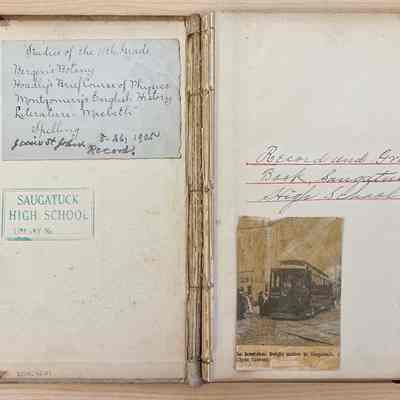 Studies of the 11th Grade
Bergen's Botany
Hoadley's Brief Course of Physics
Montgomery's English History
Literature - Macbeth
Spelling
Jessie St John 5-26, 1905
Record.
SAUGATUCK
HIGH SCHOOL
Record and Gr
Book Saugatu
High School
Interurban freight motor in Saugatuck.